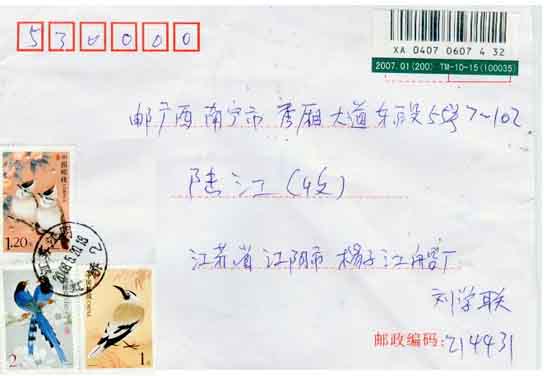 530000
XA 0407 0607 4 32
2007.01(200) TM-10-15(100035)
邮广西南宁市秀厢大道东段55号7-102
陆江(收)
江苏省江阴市扬子江船厂
刘学联
邮政编码:214431
中国邮政
1.20元
2008.5.20.18
江苏
2元
1元